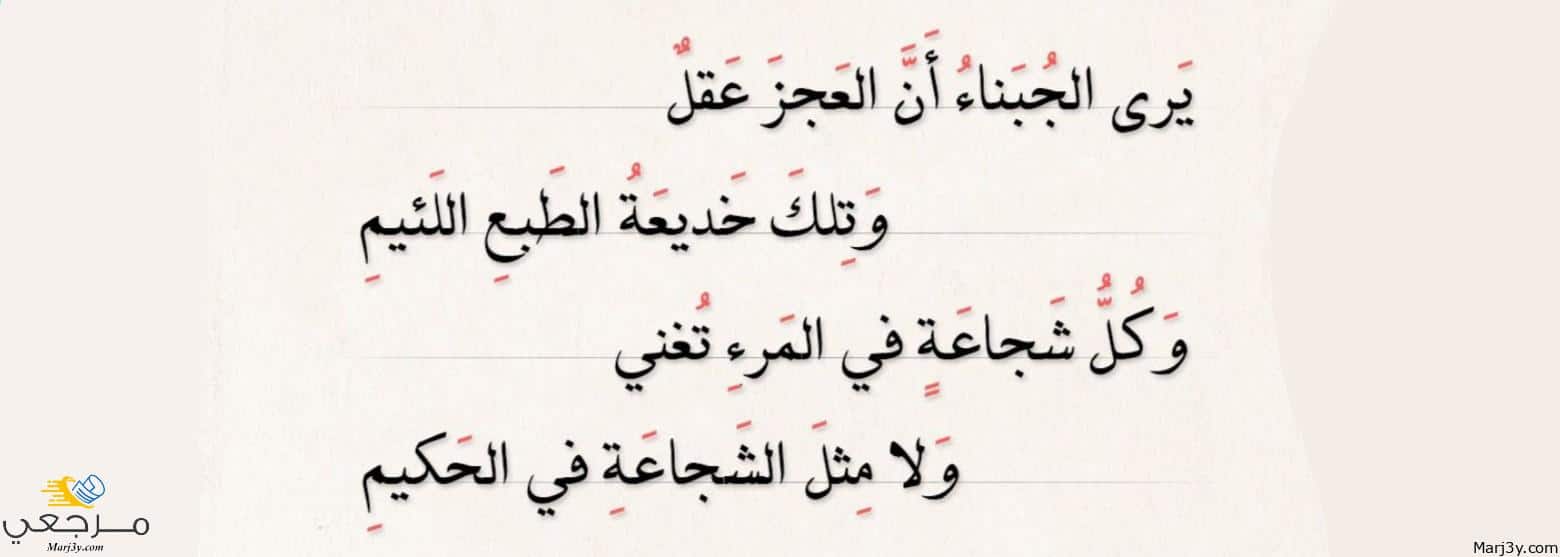 يَرى الجُبَناءُ أَنَّ العَجزَ عَقلٌ
وَتِلكَ خَديعَةُ الطَبعِ اللَئيمِ
وَكُلُّ شَجاعَةٍ في المَرءِ تُغني
وَلا مِثلَ الشَجاعَةِ في الحَكيمِ
مـرجعي
Marj3y.com
Marj3y.com